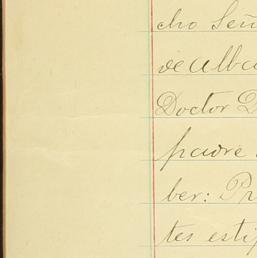 cho Señ
de Alba
Doctor D
padre
ber: Pr
tes esti